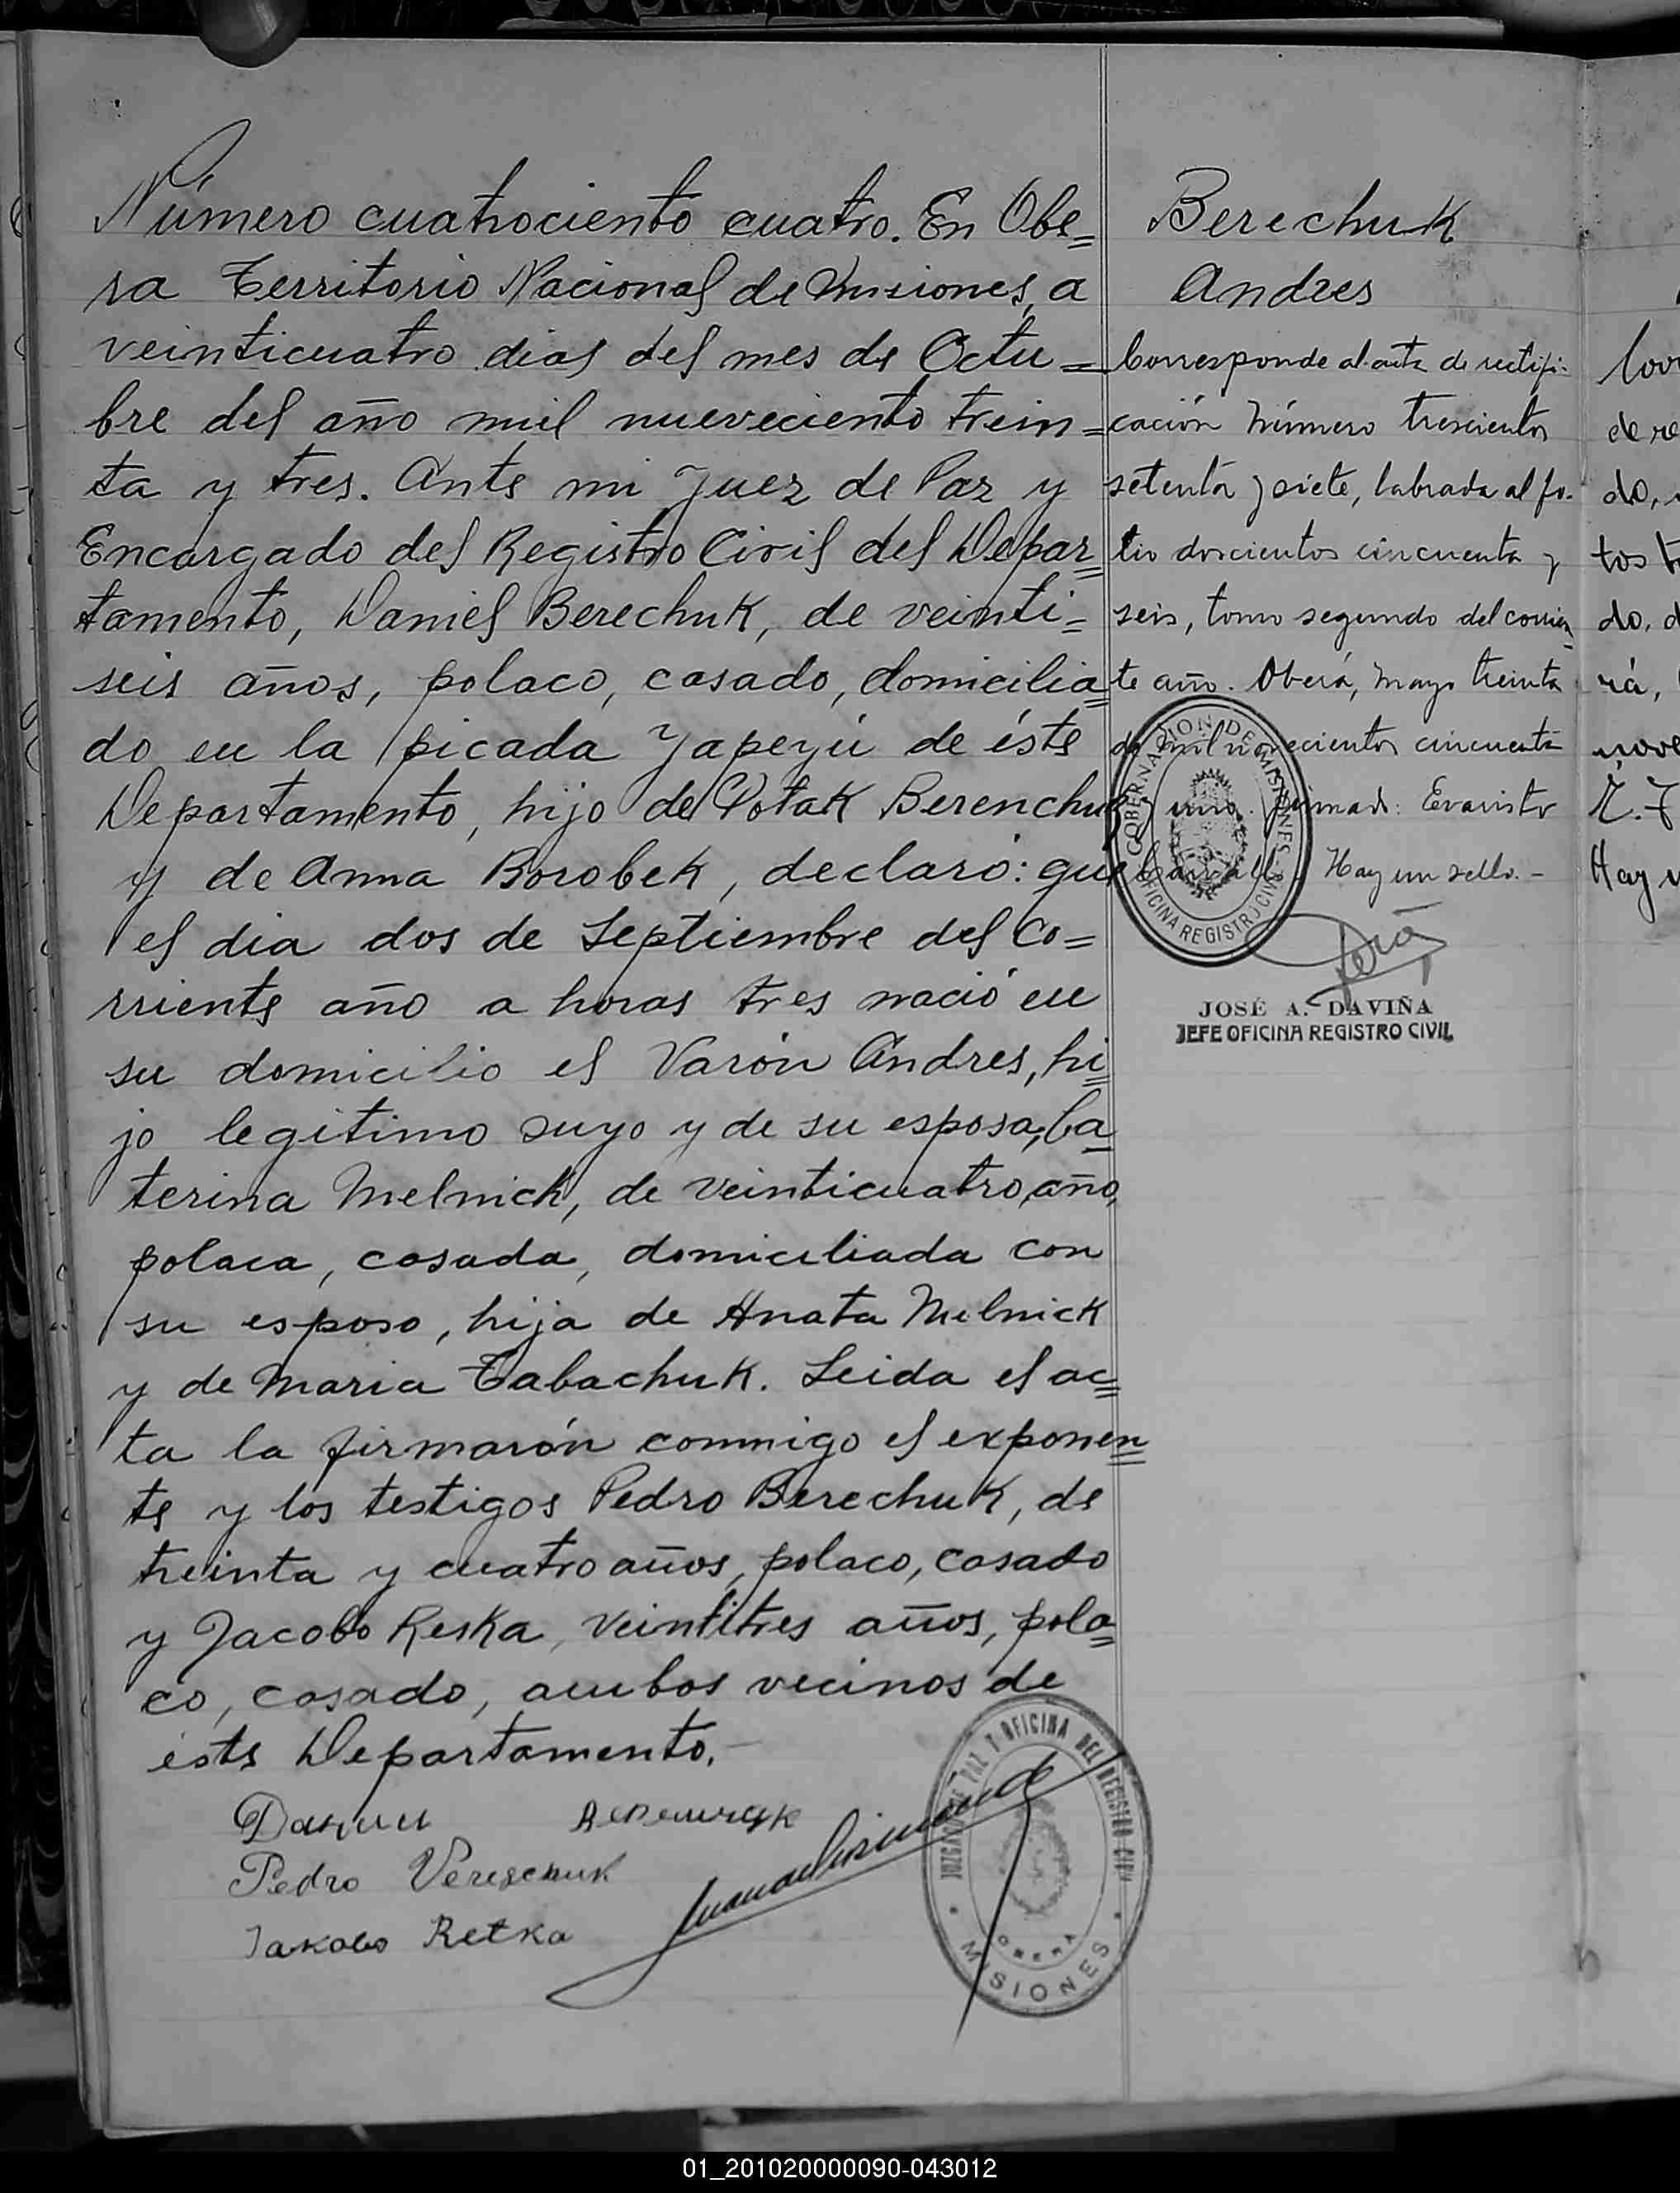 Número cuatrociento cuatro. En Obe=
ra Territorio Nacional de Misiones, a
veinticuatro dias del mes de Octu=
bre del año mil nueveciento trein=
ta y tres. Ante mi Juez de Paz y
Encargado del Registro Civil del Depar=
tamento, Daniel Berechuk, de veinti=
seis años, polaco, casado, domicilia=
do en la picada Yapeyú de éste
Departamento, hijo de Potak Berenchuk
y de Anna Borobek, declaró: que
el dia dos de Septiembre del Co=
rriente año a horas tres nació en
su domicilio el Varón Andres, hi=
jo legitimo suyo y de su esposa, Ca=
terina Melnick, de veinticuatro año,
polaca, casada, domiciliada con
su esposo, hija de Anata Melnick
y de Maria Tabachuk. Leida el ac=
ta la firmarón conmigo el exponen=
te y los testigos Pedro Berechuk, de
treinta y cuatro años, polaco, casado
y Jacobo Reska, veintitres años, pola=
co, casado, ambos vecinos de
éste Departamento.-
Pedro Vereschuk
Jakobo Retka
JUZGADO DE PAZ Y OFICINA DEL REGISTRO CIVIL
OBERA
MISIONES
Berechuk
Andres
Corresponde al acta de rectifi-
cación número trescientos
setenta y siete, labrada al fo-
lio doscientos cincuenta y
seis, tomo segundo del corrien=
te año. Oberá, mayo treinta
de mil novecientos cincuenta
y uno. firmado: Evaristo
Hay un sello.-
GOBERNACION DE MISIONES
OFICINA REGISTRO CIVIL
JOSÉ A. DAVIÑA
JEFE OFICINA REGISTRO CIVIL
de re
do,
tos t
do, d
rá,
nove
Hay u
01_201020000090-043012